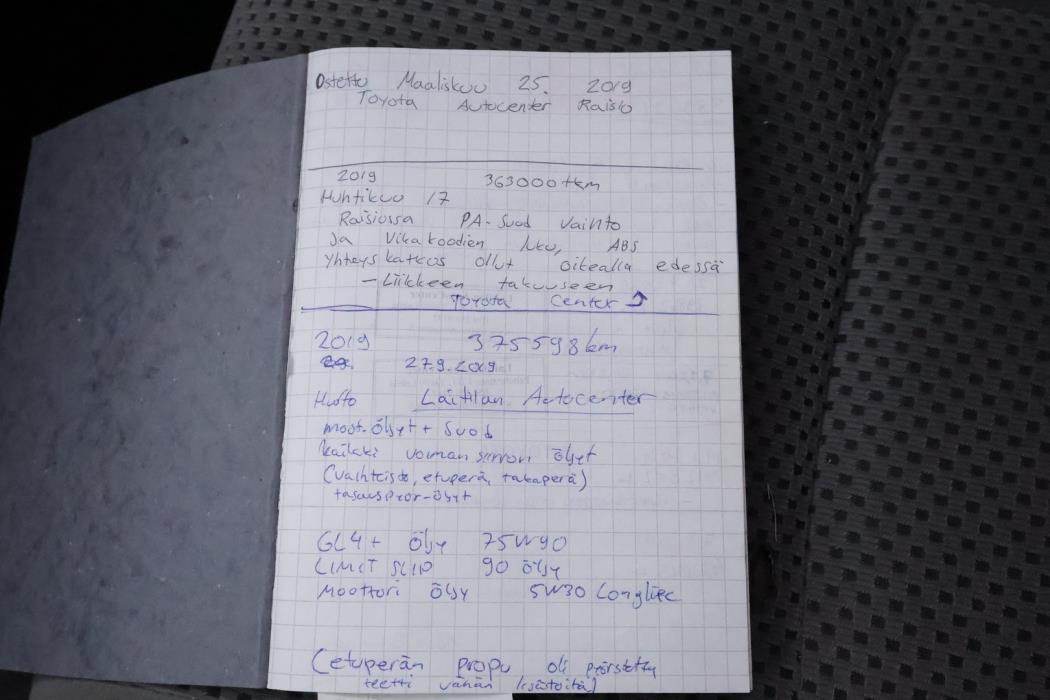 Ostettu Maaliskuu 25. 2019
Toyota Autocenter Raisio
2019 363000tkm
Huhtikuu 17
Raisiossa PA-Suod vaihto
Ja Vikakoodien luku, ABS
Yhteys katkos ollut oikealla edessä
- Liikkeen takuuseen
Toyota Center
2019 375598km
27.9.2019
Huolto Laitilan Autocenter
moot.öljyt + Suod
kaikki voiman siirron öljyt
(vaihteisto, etuperä, takaperä)
tasauspyör-öljyt
GL4+ öljy 75W90
LIMIT SLIP 90 öljy
Moottori öljy 5W30 Longlife
(etuperän propu oli pyöristetty
teetti vähän lisätöitä)